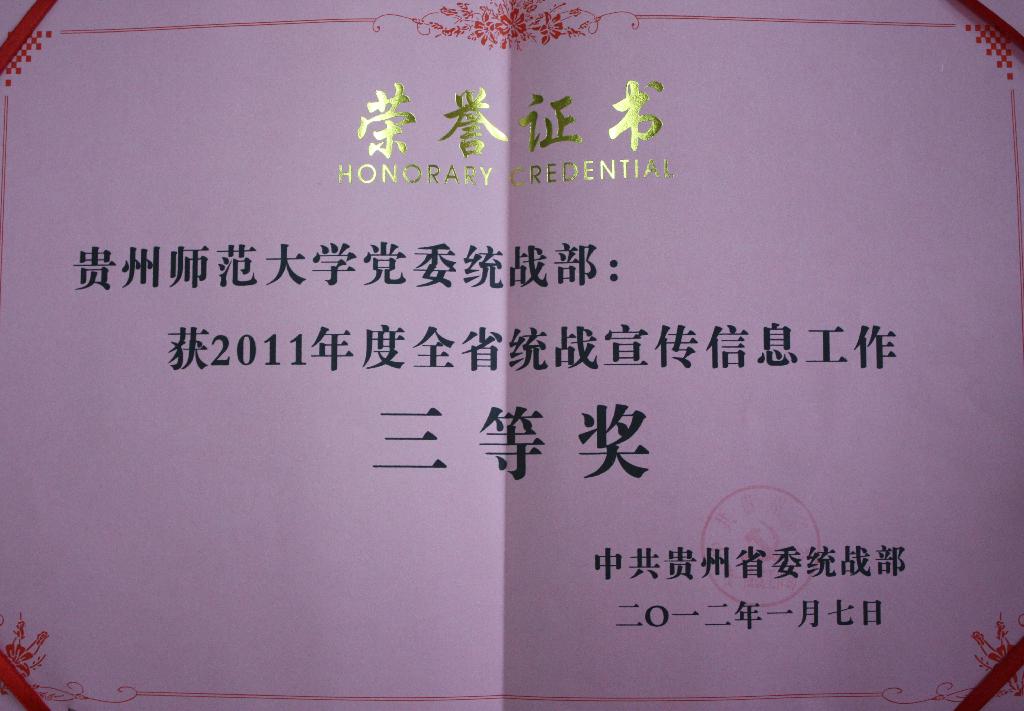 荣誉证书
HONORARY CREDENTIAL
贵州师范大学党委统战部：
获2011年度全省统战宣传信息工作
三等奖
中共贵州省委统战部
二〇一二年一月七日